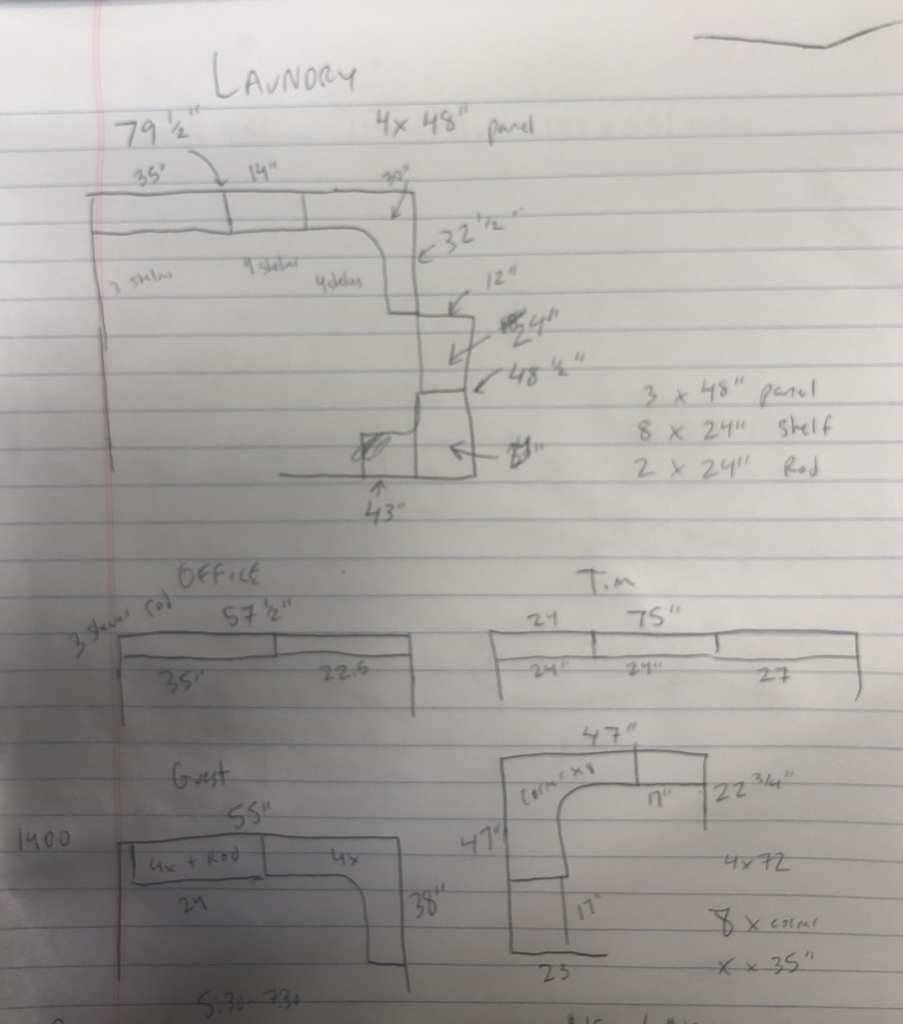 LAUNDRY
79 1/2"
4x 48" panel
35"
14"
30"
32 1/2"
3 shelves
4 shelves
12"
24"
48 1/2"
3 x 48" panel
8 x 24" shelf
2 x 24" Rod
43"
OFFICE
3 shelves rod
57 1/2"
35"
22.5
Tim
75"
24"
24"
27
Guest
1400
55"
4x + Rod
4x
24
38"
47"
corner x8
17"
22 3/4"
47"
17"
23
4x72
8 x corner
x x 35"
5:30-7:30